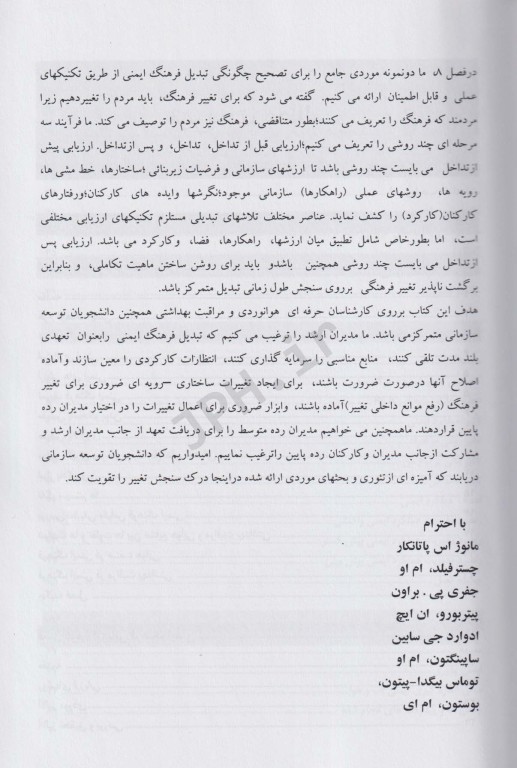 درفصل ۸، ما دونمونه موردی جامع را برای تصحیح چگونگی تبدیل فرهنگ ایمنی از طریق تکنیکهای
عملی و قابل اطمینان ارائه می کنیم. گفته می شود که برای تغییر فرهنگ، باید مردم را تغییردهیم زیرا
مردمند که فرهنگ را تعریف می کنند؛بطور متناقضی، فرهنگ نیز مردم را توصیف می کند. ما فرآیند سه
مرحله ای چند روشی را تعریف می کنیم؛ارزیابی قبل از تداخل، تداخل، و پس ازتداخل. ارزیابی پیش
ازتداخل می بایست چند روشی باشد تا ارزشهای سازمانی و فرضیات زیربنائی ؛ساختارها، خط مشی ها،
رویه ها، روشهای عملی (راهکارها) سازمانی موجود؛نگرشها وایده های کارکنان؛ورفتارهای
کارکنان(کارکرد) را کشف نماید. عناصر مختلف تلاشهای تبدیلی مستلزم تکنیکهای ارزیابی مختلفی
است، اما بطورخاص شامل تطبیق میان ارزشها، راهکارها، فضا، وکارکرد می باشد. ارزیابی پس
ازتداخل می بایست چند روشی همچنین باشدو باید برای روشن ساختن ماهیت تکاملی، و بنابراین
برگشت ناپذیر تغییر فرهنگی برروی سنجش طول زمانی تبدیل متمرکز باشد.
هدف این کتاب برروی کارشناسان حرفه ای هوانوردی و مراقبت بهداشتی همچنین دانشجویان توسعه
سازمانی متمرکزمی باشد. ما مدیران ارشد را ترغیب می کنیم که تبدیل فرهنگ ایمنی رابعنوان تعهدی
بلند مدت تلقی کنند، منابع مناسبی را سرمایه گذاری کنند، انتظارات کارکردی را معین سازند وآماده
اصلاح آنها درصورت ضرورت باشند، برای ایجاد تغییرات ساختاری –رویه ای ضروری برای تغییر
فرهنگ (رفع موانع داخلی تغییر)آماده باشند، وابزار ضروری برای اعمال تغییرات را در اختیار مدیران رده
پایین قراردهند. ماهمچنین می خواهیم مدیران رده متوسط را برای دریافت تعهد از جانب مدیران ارشد و
مشارکت ازجانب مدیران وکارکنان رده پایین راترغیب نماییم. امیدواریم که دانشجویان توسعه سازمانی
دریابند که آمیزه ای ازتئوری و بحثهای موردی ارائه شده دراینجا درک سنجش تغییر را تقویت کند.
با احترام
مانوژ اس پاتانکار
چسترفیلد، ام او
جفری پی . براون
پیتربورو، ان ایچ
ادوارد جی سابین
ساپینگتون، ام او
توماس بیگدا-پیتون،
بوستون، ام ای
JPH.ir